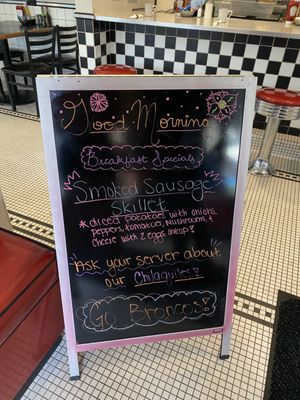 Good Morning
Breakfast Specials
Smoked Sausage
Skillet
*diced potatoes with onions,
peppers, tomatoes, mushrooms, &
cheese with 2 eggs atop!
Ask your server about
our Chilaquiles!
Go Broncos!